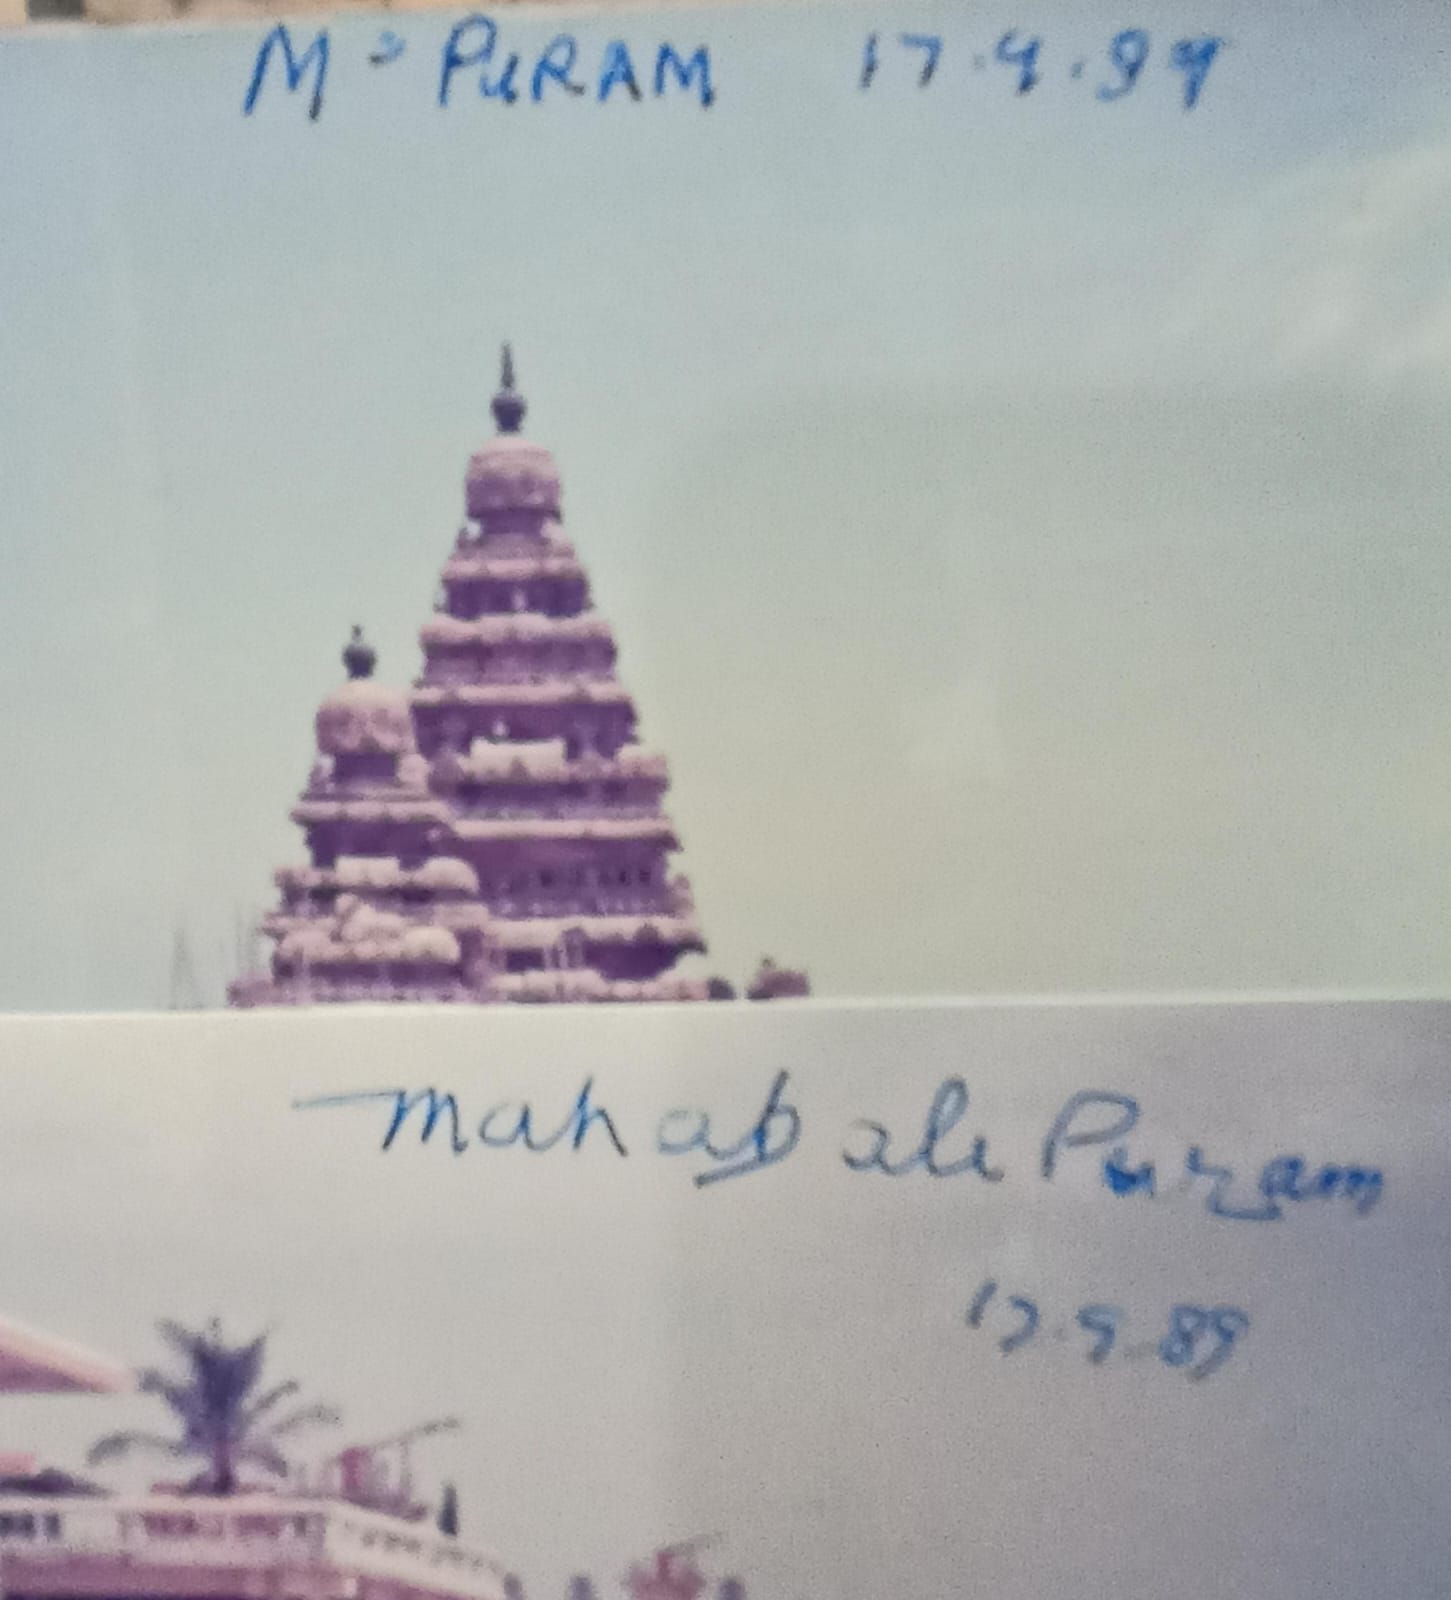 M-PURAM 17.9.89
Mahabali Puram
17.9.89